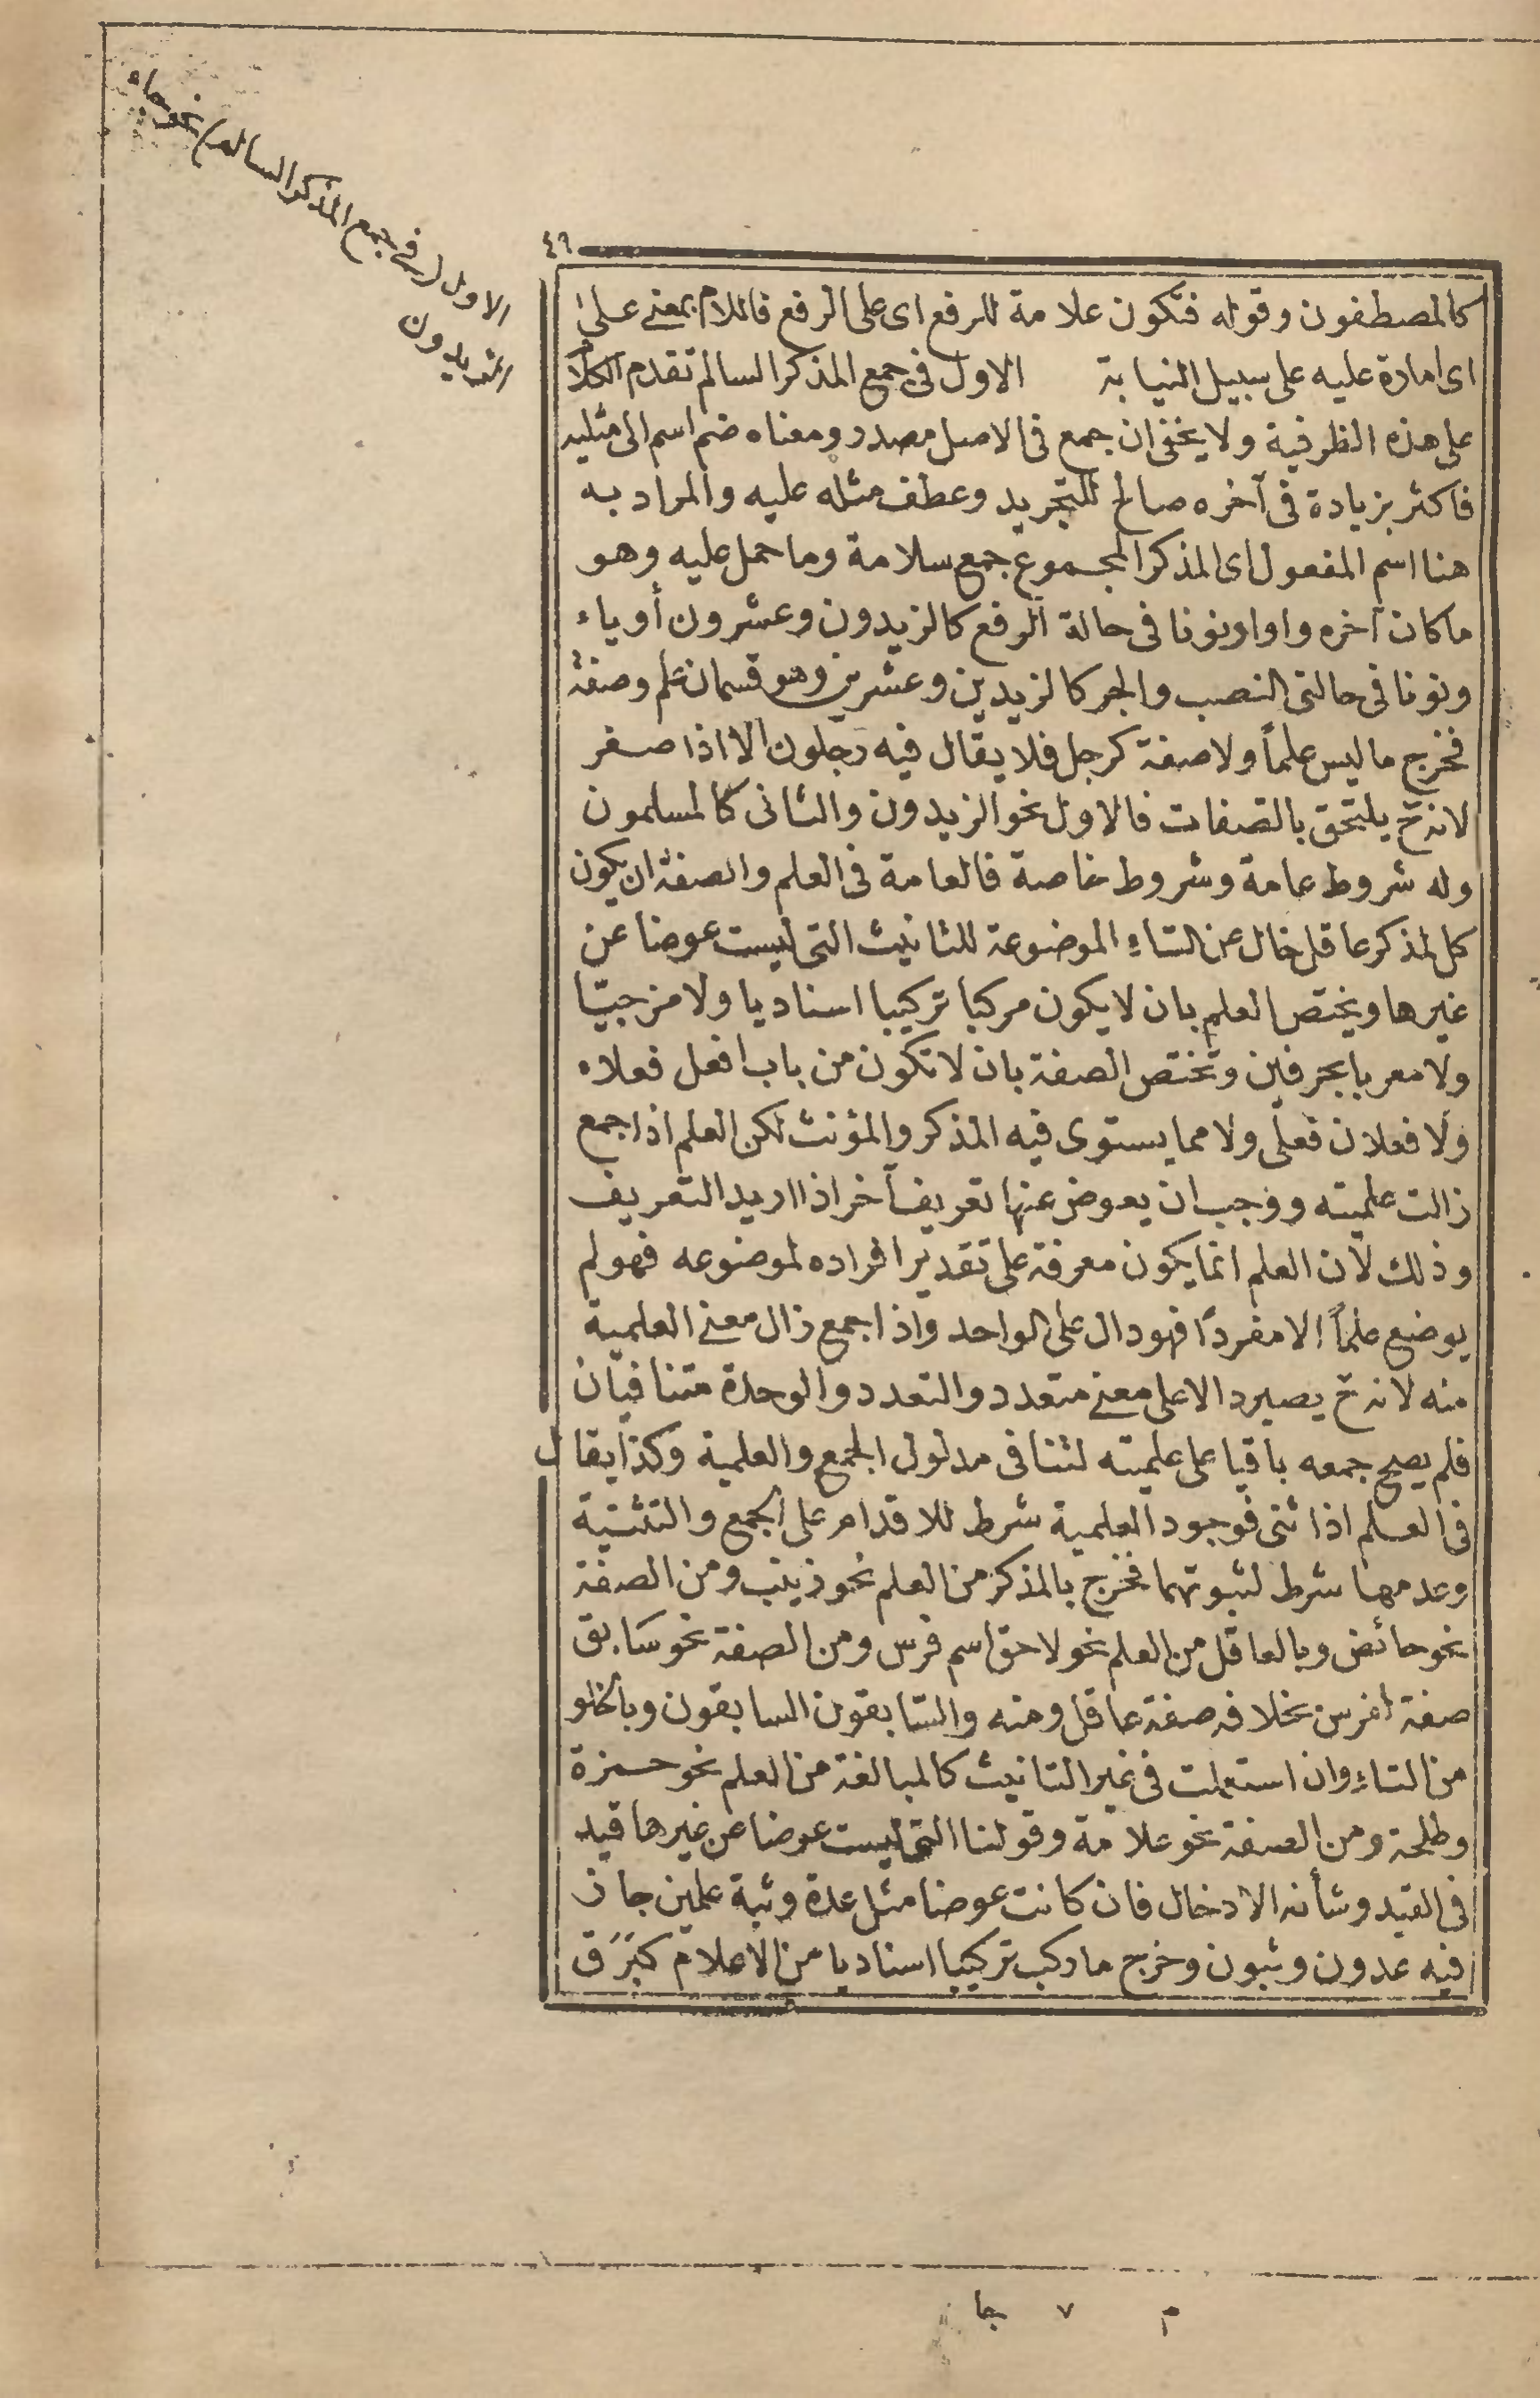 ٤٩
الاول (في جمع المذكر السالم) نحو جاء
الزيدون
كالمصطفون وقوله فتكون علامة للرفع اى على الرفع فاللام بمعنى على
اى امارة عليه على سبيل النيابة الاول فى جمع المذكر السالم تقدم الكلا
على هذه الظرفية ولا يخفى ان جمع فى الاصل مصدر ومعناه ضم اسم الى مثليه
فاكثر بزيادة فى آخره صالح للتجريد وعطف مثله عليه والمراد به
هنا اسم المفعول اى المذكر المجموع جمع سلامة وما حمل عليه وهو
ما كان آخره واوا ونونا فى حالة الرفع كالزيدون وعشرون أو ياء
ونونا فى حالتى النصب والجر كالزيدين وعشرين وهو قسمان علم وصفة
فخرج ما ليس علماً ولا صفة كرجل فلا يقال فيه رجلون الا اذا صغر
لانه ح يلتحق بالصفات فالاول نحو الزيدون والثانى كالمسلمون
وله شروط عامة وشروط خاصة فالعامة فى العلم والصفة ان يكون
كل لمذكر عاقل خال عن التاء الموضوعة للتانيث التى ليست عوضا عن
غيرها ويختص العلم بان لا يكون مركبا تركيبا اسناديا ولا مزجيّا
ولا معربا بحرفين وتختص الصفة بان لا تكون من باب افعل فعلاء
ولا فعلان فعلى ولا مما يستوى فيه المذكر والمؤنث لكن العلم اذا جمع
زالت علميته ووجب ان يعوض عنها تعريف آخر اذا اريد التعريف
وذلك لان العلم انما يكون معرفة على تقدير افراده لموضوعه فهو لم
يوضع علماً الا مفرداً فهو دال على الواحد واذا جمع زال معنى العلمية
منه لانه ح يصير دالا على معنى متعدد والتعدد والوحدة متنافيان
فلم يصح جمعه باقيا على علميته لتنافى مدلول الجمع والعلمية وكذا يقال
فى العلم اذا ثنى فوجود العلمية شرط للاقدام على الجمع والتثنية
وعدمها شرط لثبوتهما فخرج بالمذكر من العلم نحو زينب ومن الصفة
نحو حائض وبالعاقل من العلم نحو لاحق اسم فرس ومن الصفة نحو سَابق
صفة لفرس بخلافه صفة عاقل ومنه والسّابقون السابقون وبالخلو
من التاء وان استعملت فى غير التانيث كالمبالغة من العلم نحو حمزة
وطلحة ومن الصفة نحو علامة وقولنا التى ليست عوضا عن غيرها قيد
فى القيد وشأنه الادخال فان كانت عوضا مثل عدة وثبة علمين جاز
فيه عدون وثبون وخرج ما ركب تركيبا اسناديا من الاعلام كبَرَق
م ٧ جا